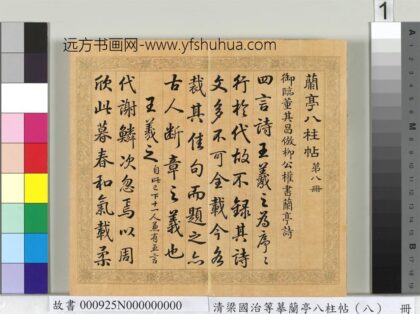 远方书画网-www.yfshuhua.com
1
蘭亭八柱帖 第八冊
御臨董其昌倣柳公權書蘭亭詩
四言詩王羲之為序序
行於代故不錄其詩
文多不可全載今各
裁其佳句而題之亦
古人斷章之義也
王羲之 自此已下十一人並有五言
代謝鱗次忽焉以周
欣此暮春和氣載柔
故書 000925N000000000
清梁國治等摹蘭亭八柱帖(八) 冊